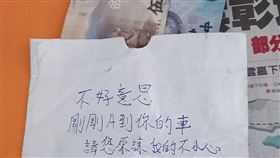 伍
彰
部分
不好意思
剛剛A到你的車
請您原諒我的不小心